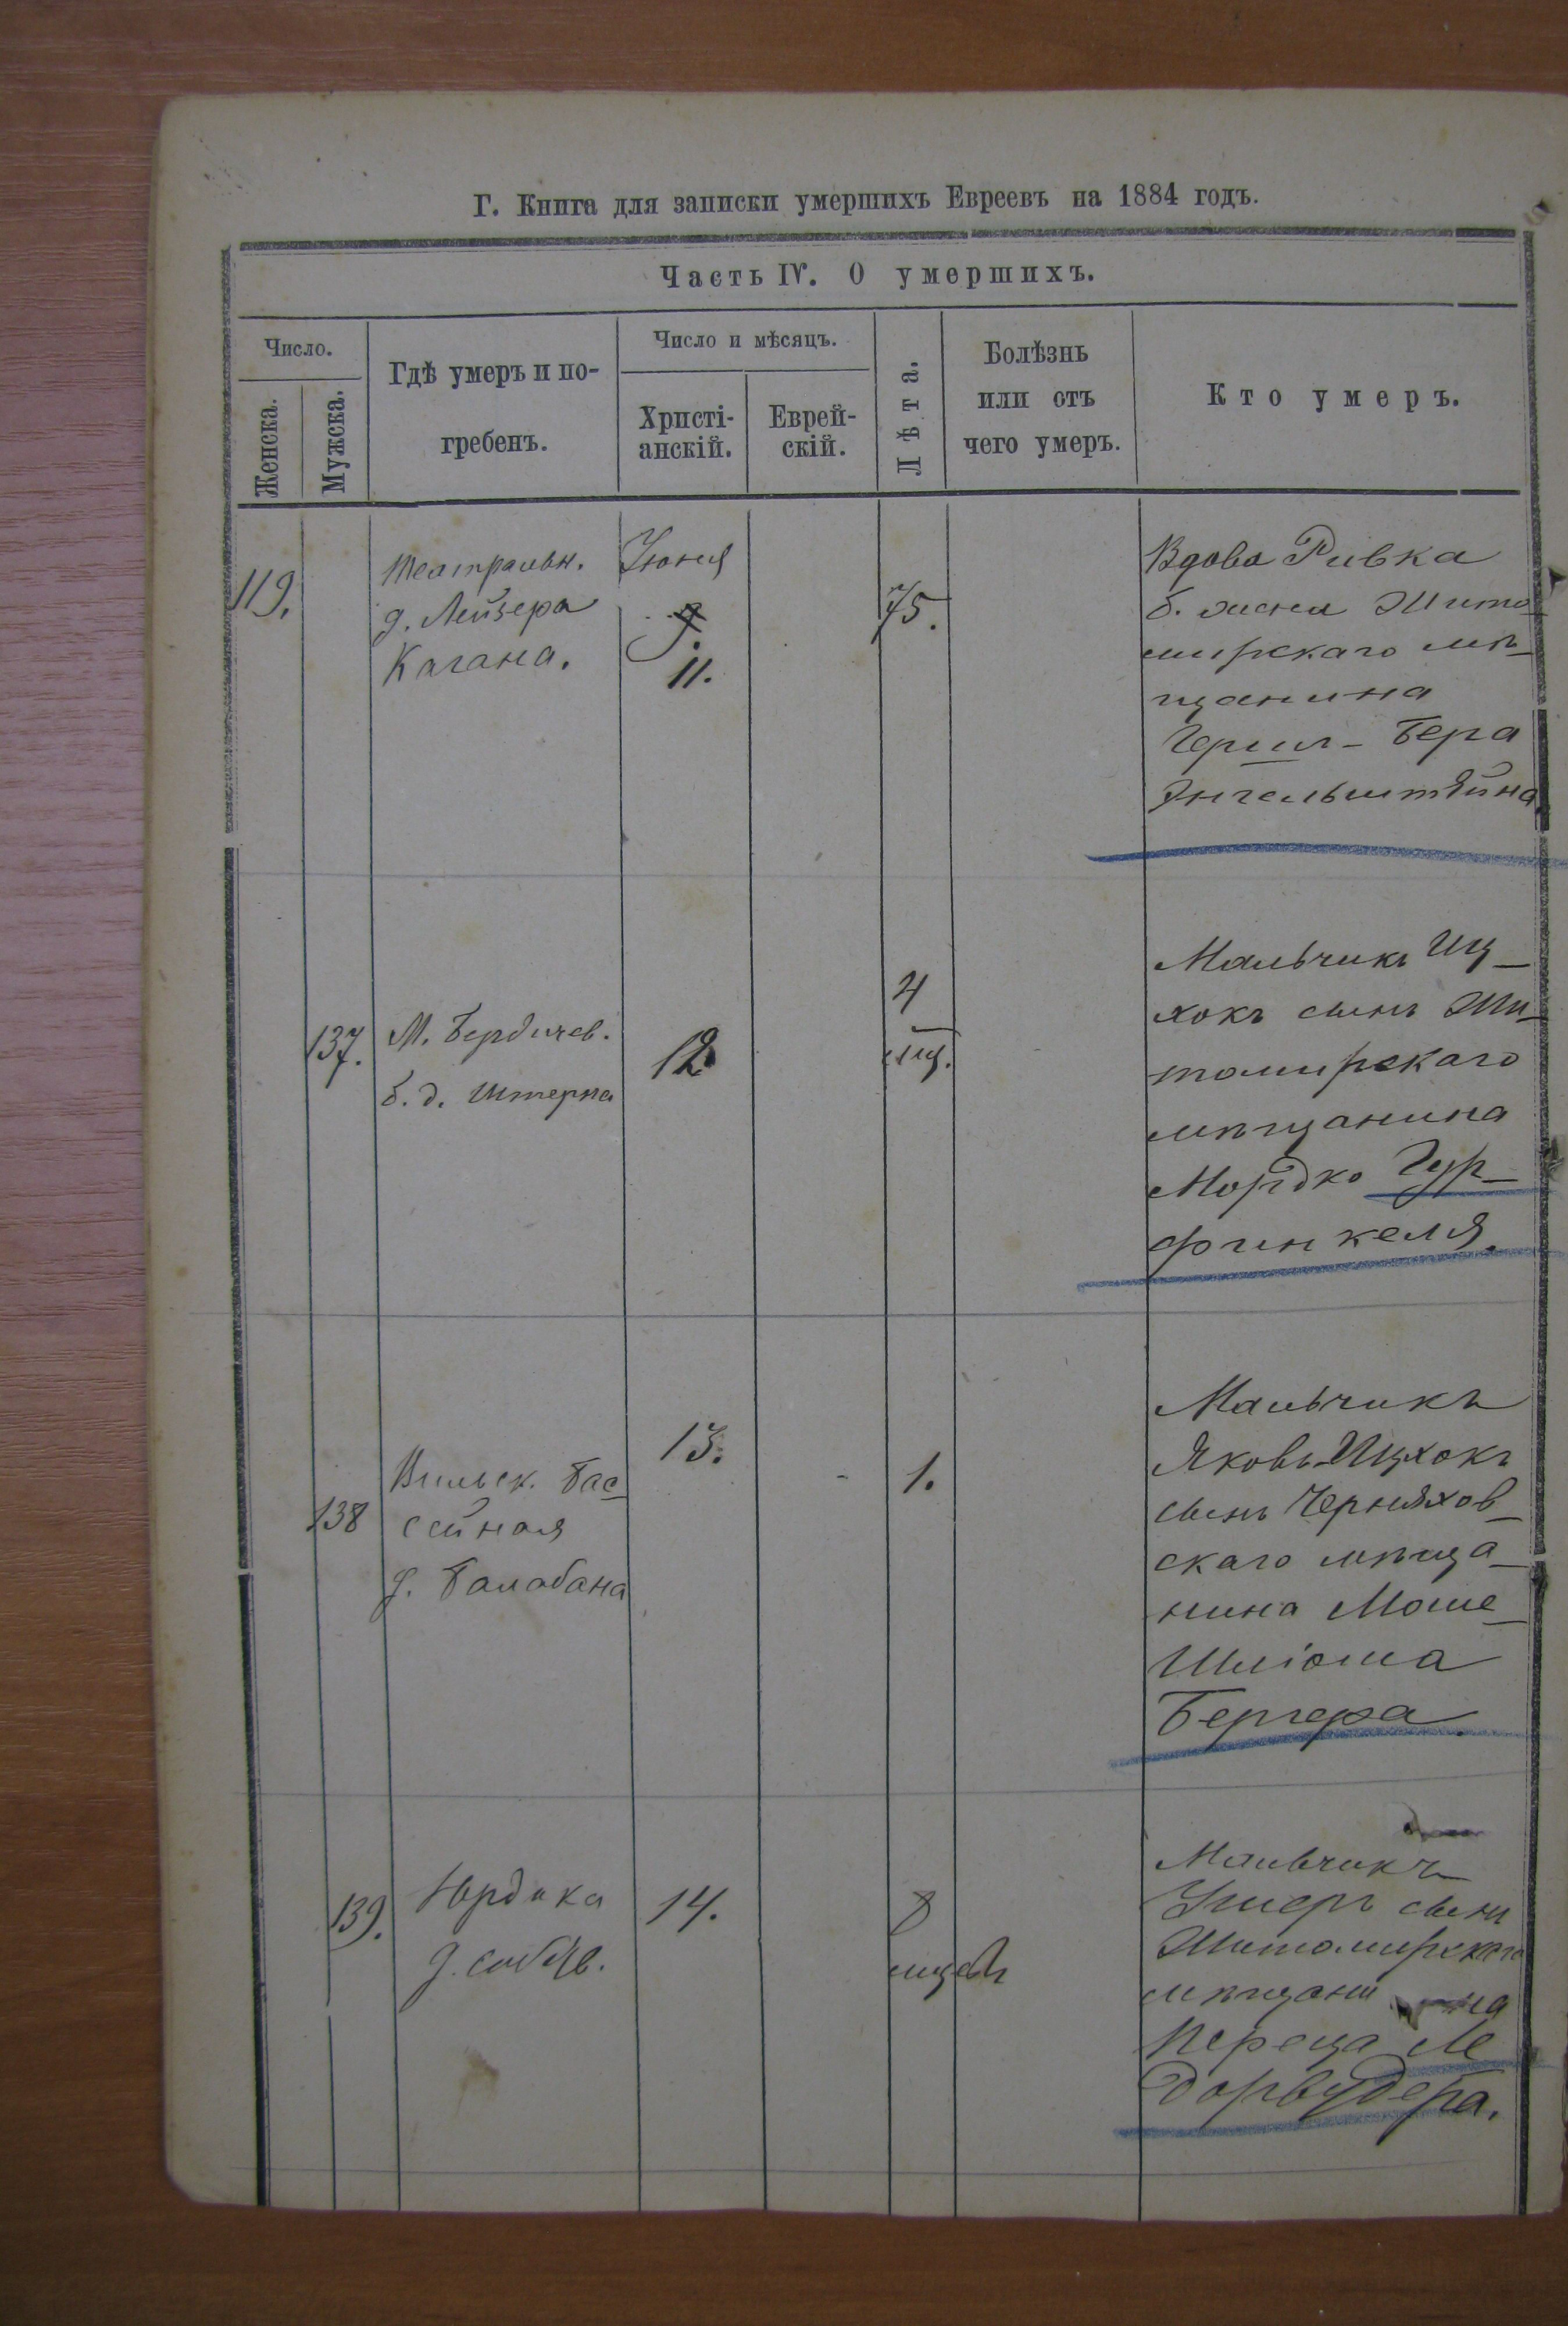 Г. Книга для записки умершихъ Евреевъ на 1884 годъ.
Часть IV. О умершихъ.
Число.
Женска.
Мужска.
Гдѣ умеръ и по-
гребенъ.
Число и мѣсяцъ.
Христі-
анскій.
Еврей-
скій.
Лѣта.
Болѣзнь
или отъ
чего умеръ.
Кто умеръ.
119.
Театральн.
д. Лейзера
Кагана.
Іюня
11.
75.
Вдова Ривка
б. жена Жито-
мирскаго мѣ-
щанина
Гершл-Бера
Энгельштейна
137.
М. Бердичев.
б. д. Штерна
12
4
мц.
Мальчикъ Иц-
хокъ сынъ Жи-
томирскаго
мѣщанина
Мордко Гур-
финкеля.
138
Вильск. Бас-
сейная
д. Балабана
13.
1.
Мальчикъ
Яковъ-Ицхокъ
сынъ Черняхов-
скаго мѣща-
нина Моше-
Шліома
Бергера.
139.
Юрдика
д. собств.
14.
8
мцевъ
Мальчикъ
Ушеръ сынъ
Житомирскаго
мѣщанина
Переца Ме